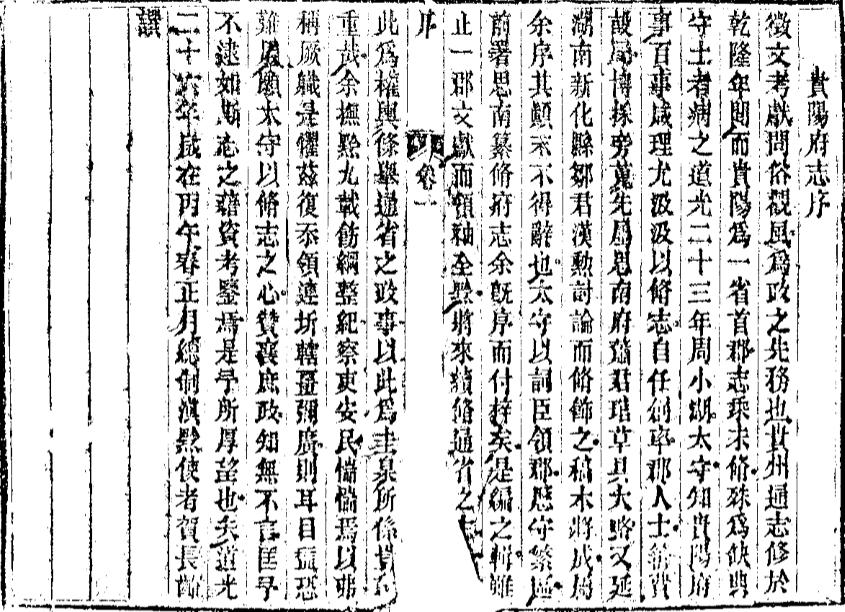 貴陽府志序
徵文考獻問俗觀風爲政之先務也貴州通志修於
乾隆年間而貴陽爲一省首郡志乘未脩殊爲缺典
守土者病之道光二十三年周小湖太守知貴陽府
事百事咸理尤汲汲以脩志自任創率郡人士籌費
設局博採旁蒐先屬思南府 君 草具大略又延
湖南新化縣鄒君漢勛討論而脩飾之稿本將成屬
余序其顛末不得辭也太守以詞臣領郡歷守繁區
前署思南纂脩府志余旣序而付梓矣是編之輯雖
止一郡文獻而領袖全黔將來續脩通省之
序 卷一
此爲權輿條舉通省之政事以此爲圭臬所係
重哉余撫黔九載飭綱整紀察吏安民惴惴焉以弗
稱厥職是懼茲復忝領連圻轄疆彌廣則耳目益恐
難周願太守以脩志之心贊襄庶政知無不言匡予
不逮如斯志之藉資考鑒焉是予所厚望也夫道光
二十六年歲在丙午春正月總制滇黔使者賀長齡
譔